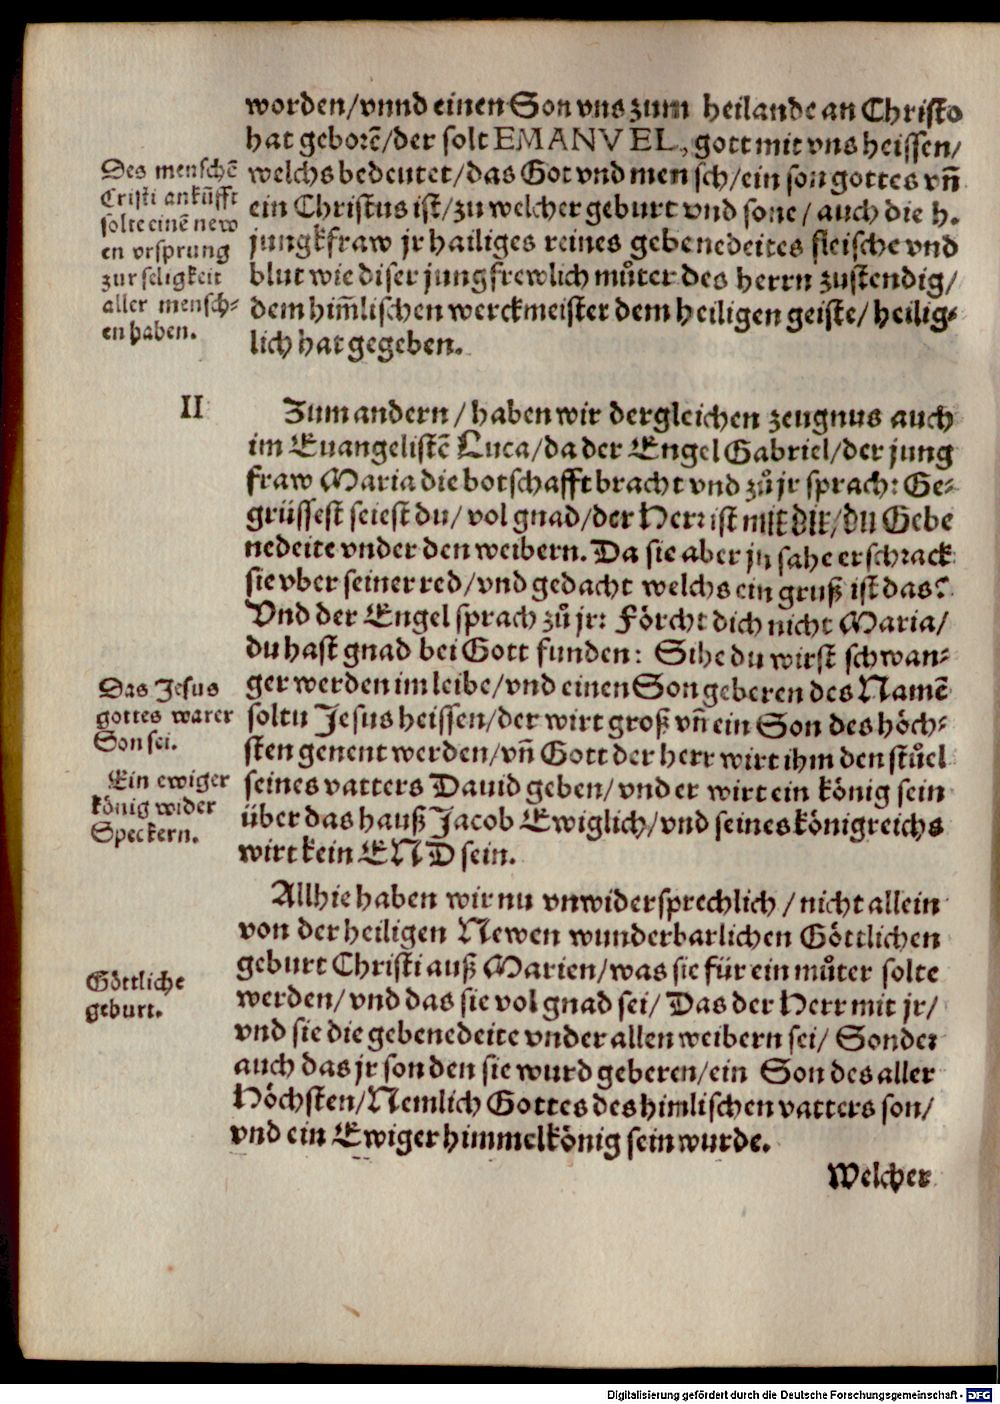 worden/vnnd einen Son vns zum heilande an Christo
hat geborẽ/der solt EMANVEL, gott mit vns heissen/
welchs bedeutet/das Got vnd mensch/ein son gottes vñ
ein Christus ist/zu welcher geburt vnd sone/auch die h.
jungkfraw jr hailiges reines gebenedeites fleische vnd
blut wie diser jungfrewlich můter des herrn zustendig/
dem him̃lischen werckmeister dem heiligen geiste/heilig-
lich hat gegeben.
Des menschẽ
Cristi ankũfft
solte einẽ new
en vrsprung
zur seligkeit
aller mensch-
en haben.
II
Zum andern/haben wir dergleichen zeugnus auch
im Euangelistẽ Luca/da der Engel Gabriel/der jung
fraw Maria die botschafft bracht vnd zů jr sprach: Ge-
grüssest seiest du/vol gnad/der Herr ist mit dir/du Gebe
nedeite vnder den weibern. Da sie aber jn sahe erschrack
sie vber seiner red/vnd gedacht welchs ein gruß ist das?
Vnd der Engel sprach zů jr: Förcht dich nicht Maria/
du hast gnad bei Gott funden: Sihe du wirst schwan-
ger werden im leibe/vnd einen Son geberen des Namẽ
soltu Jesus heissen/der wirt groß vñ ein Son des höch-
sten genent werden/vñ Gott der herr wirt ihm den stůel
seines vatters Dauid geben/vnd er wirt ein könig sein
über das hauß Jacob Ewiglich/vnd seines königreichs
wirt kein END sein.
Das Jesus
gottes warer
Son sei.
Ein ewiger
könig wider
Speckern.
Allhie haben wir nu vnwidersprechlich/nicht allein
von der heiligen Newen wunderbarlichen Göttlichen
geburt Christi auß Marien/was sie für ein můter solte
werden/vnd das sie vol gnad sei/Das der Herr mit jr/
vnd sie die gebenedeite vnder allen weibern sei/Sonder
auch das jr son den sie wurd geberen/ein Son des aller
Höchsten/Nemlich Gottes des himlischen vatters son/
vnd ein Ewiger himmelkönig sein wurde.
Göttliche
geburt.
Welcher
Digitalisierung gefördert durch die Deutsche Forschungsgemeinschaft - DFG